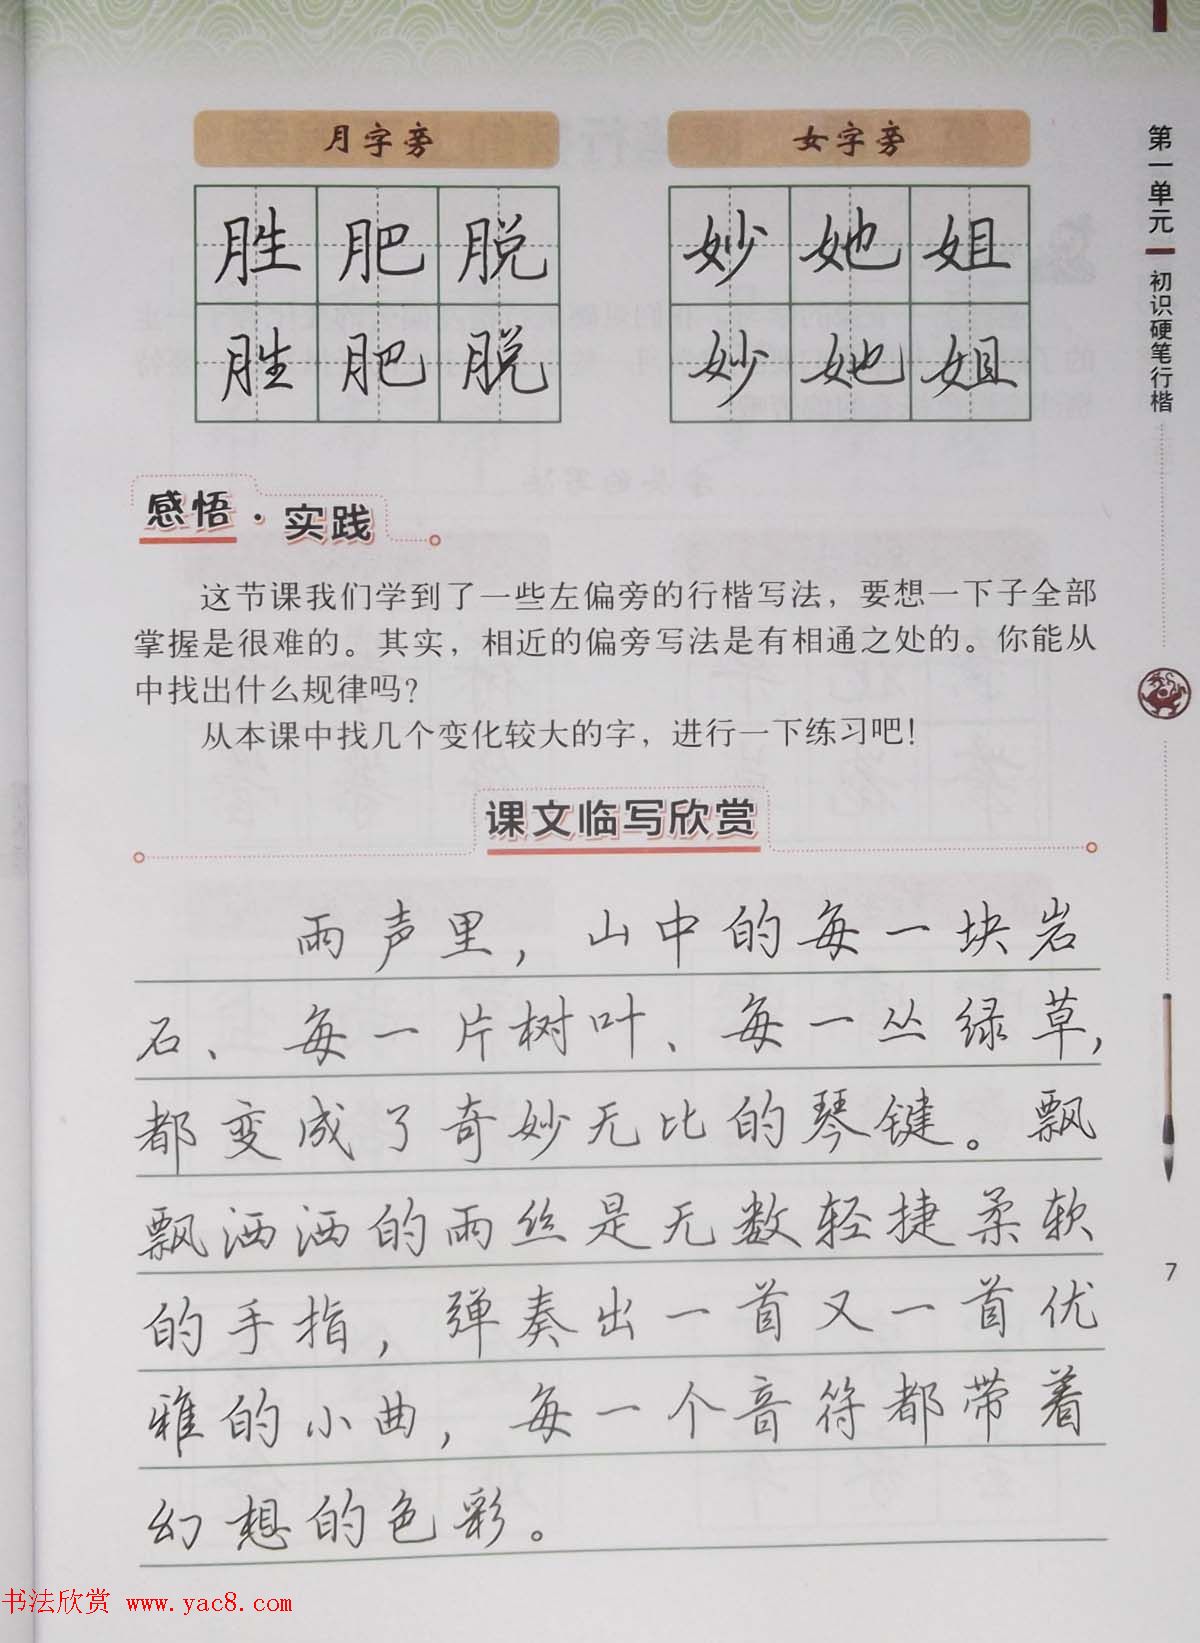 月字旁
女字旁
胜肥脱
妙她姐
胜肥脱
妙她姐
第一单元 初识硬笔行楷
感悟·实践
这节课我们学到了一些左偏旁的行楷写法，要想一下子全部
掌握是很难的。其实，相近的偏旁写法是有相通之处的。你能从
中找出什么规律吗？
从本课中找几个变化较大的字，进行一下练习吧！
课文临写欣赏
雨声里，山中的每一块岩
石、每一片树叶、每一丛绿草，
都变成了奇妙无比的琴键。飘
飘洒洒的雨丝是无数轻捷柔软
的手指，弹奏出一首又一首优
雅的小曲，每一个音符都带着
幻想的色彩。
7
书法欣赏 www.yac8.com